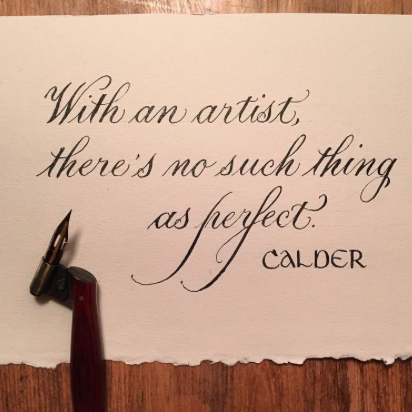 With an artist,
there's no such thing
as perfect.
CALDER